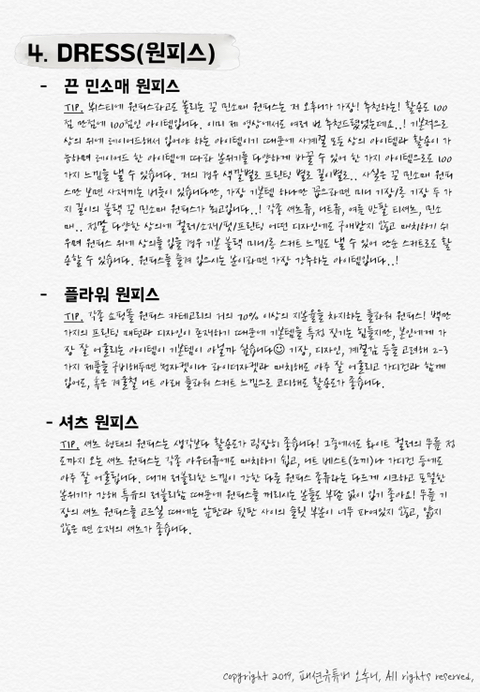 4. DRESS(원피스)
- 끈 민소매 원피스
TIP. 뷔스티에 원피스라고도 불리는 끈 민소매 원피스는 저 오후니가 가장! 추천하는! 활용도 100
점 만점에 100점인 아이템입니다. 이미 제 영상에서도 여러 번 추천드렸었는데요..! 기본적으로
상의 위에 레이어드해서 입어야 하는 아이템이기 때문에 사계절 모든 상의 아이템과 활용이 가
능하며 레이어드 한 아이템에 따라 분위기를 다양하게 바꿀 수 있어 한 가지 아이템으로 100
가지 느낌을 낼 수 있습니다. 저의 경우 색깔별로 프린팅 별로 길이별로.. 사실은 끈 민소매 원피
스만 보면 사재끼는 버릇이 있습니다만, 가장 기본템 하나만 꼽으라면 미니 기장/롱 기장 두 가
지 길이의 블랙 끈 민소매 원피스가 최고입니다..! 각종 셔츠류, 니트류, 여름 반팔 티셔츠, 민소
매.. 정말 다양한 상의에 컬러/소재/핏/프린팅 어떤 디자인에도 구애받지 않고 매치하기 쉬
우며 원피스 위에 상의를 입을 경우 기본 블랙 미니/롱 스커트 느낌도 낼 수 있어 단순 스커트로도 활
용할 수 있습니다. 원피스를 즐겨 입으시는 분이라면 가장 강추하는 아이템입니다..!
- 플라워 원피스
TIP. 각종 쇼핑몰 원피스 카테고리의 거의 70% 이상의 지분율을 차지하는 플라워 원피스! 백만
가지의 프린팅 패턴과 디자인이 존재하기 때문에 기본템을 특정 짓기는 힘들지만, 본인에게 가
장 잘 어울리는 아이템이 기본템이 아닐까 싶습니다☺ 기장, 디자인, 계절감 등을 고려해 2-3
가지 제품을 구비해두면 청자켓이나 라이더자켓과 매치해도 아주 잘 어울리고 가디건과 함께
입어도, 혹은 겨울철 니트 아래 플라워 스커트 느낌으로 코디해도 활용도가 좋습니다.
- 셔츠 원피스
TIP. 셔츠 형태의 원피스는 생각보다 활용도가 굉장히 좋습니다! 그중에서도 화이트 컬러의 무릎 정
도까지 오는 셔츠 원피스는 각종 아우터류에도 매치하기 쉽고, 니트 베스트(조끼)나 가디건 등에도
아주 잘 어울립니다. 대개 러블리한 느낌이 강한 다른 원피스 종류와는 다르게 시크하고 포멀한
분위기가 강해 특유의 러블리함 때문에 원피스를 꺼리시는 분들도 부담 없이 입기 좋아요! 무릎 기
장의 셔츠 원피스를 고르실 때에는 앞판과 뒷판 사이의 슬릿 부분이 너무 파여있지 않고, 얇지
않은 면 소재의 셔츠가 좋습니다.
Copyright 2019, 패션유튜버 오후니, All rights reserved.